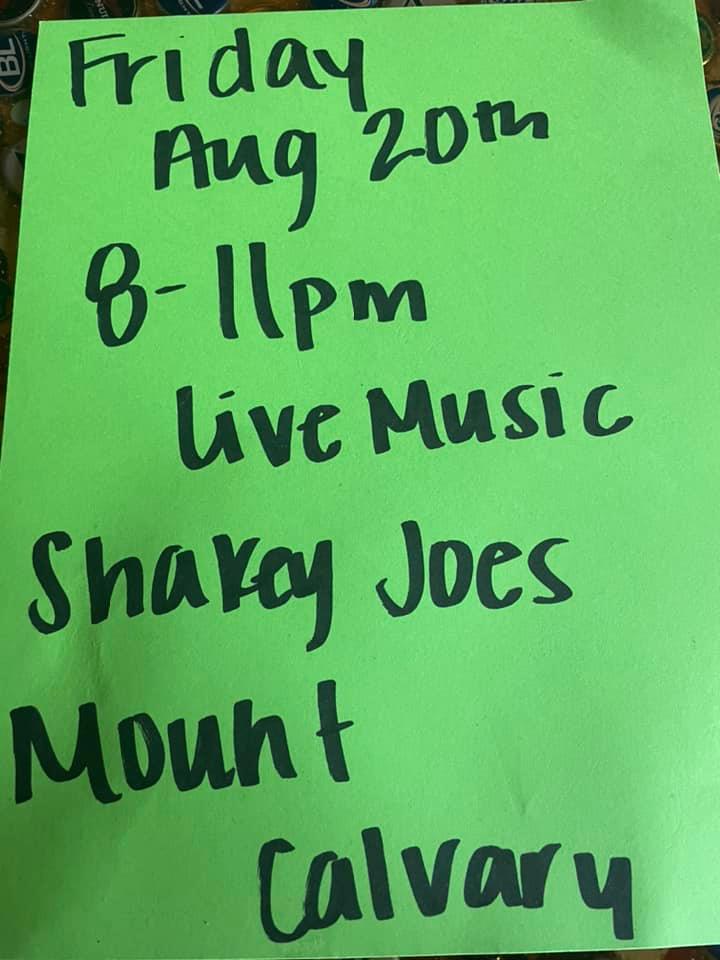 Friday
Aug 20th
8-11pm
Live Music
Shakey Joes
Mount
Calvary
BL